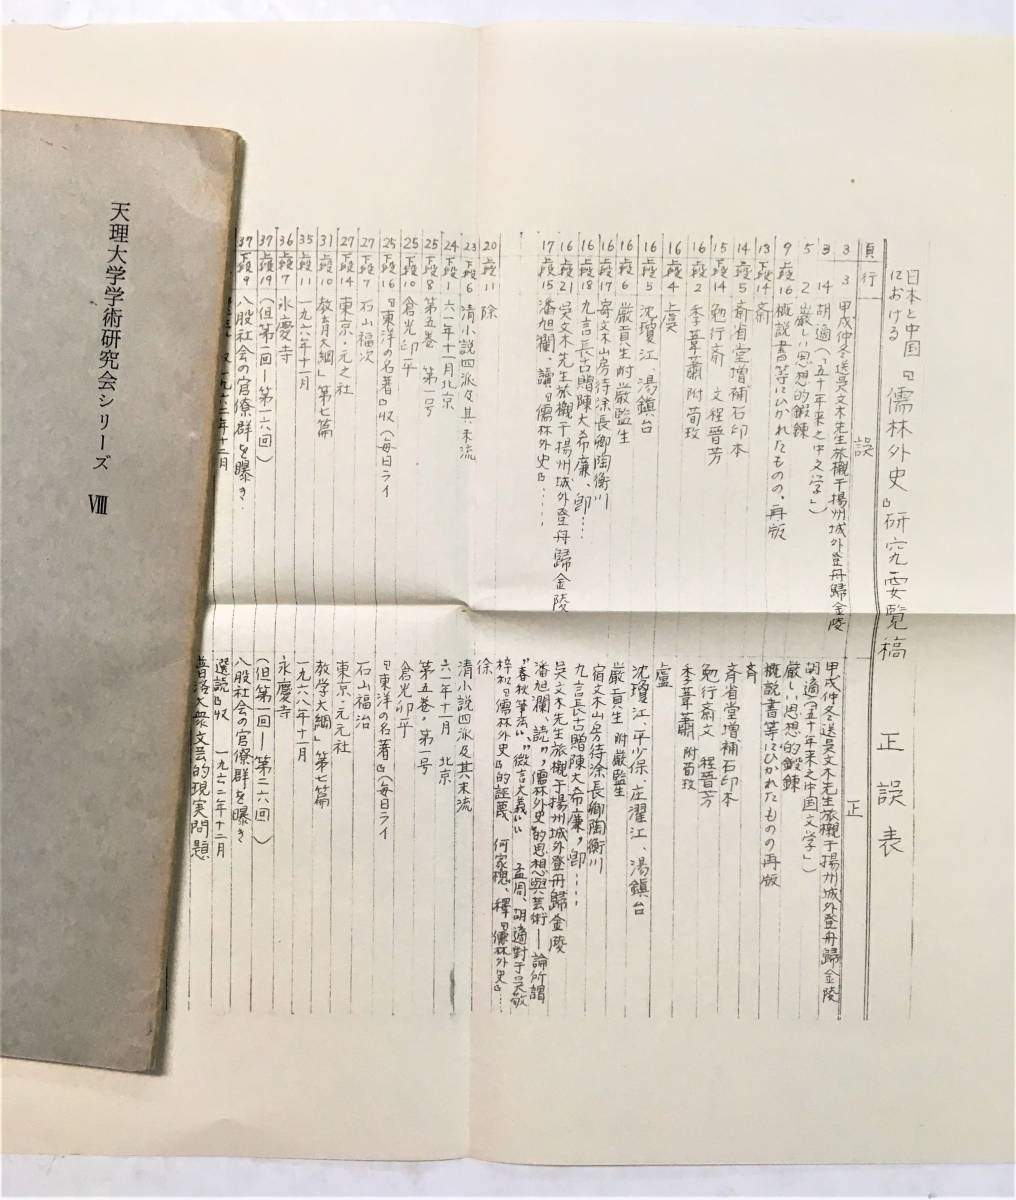 日本と中国における『儒林外史』研究要覧稿　正誤表
頁　行　誤　正
3　3　甲戌仲冬送吴文木先生旅櫬干揚州城外登舟歸金陵　甲戌仲冬送吴文木先生旅櫬于揚州城外登舟歸金陵
3　14　胡適(「五十年来之中文学」)　胡適(「五十年来之中国文学」)
5　2　厳い思想的鍛錬　厳しい思想的鍛錬
9　上段16　概説書等にひかれたものの、再版　概説書等にひかれたものの再版
13　上段14　斎　斉
14　上段5　斎省堂増補石印本　斉省堂増補石印本
15　上段14　勉行斎　文程晋芳　勉行斎文　程晋芳
16　上段2　季葦蕭附荀玫　季葦蕭　附荀玫
16　上段4　虞　盧
16　上段5　沈瓊江、湯鎮台　沈瓊江、平少保、庄濯江、湯鎮台
16　上段6　厳貢生附厳監生　厳貢生　附厳監生
16　上段17　寄文木山房待涂長卿陶衡川　宿文木山房待涂長卿陶衡川
16　上段18　九言長古贈陳大希廉、即……　九言長古贈陳大希廉,即……
16　上段21　吳文木先生旅櫬干揚州城外登舟歸金陵　吳文木先生旅櫬于揚州城外登舟歸金陵
17　上段15　潘旭瀾、讀『儒林外史』……　潘旭瀾、読"儒林外史"的思想與芸術—論所謂
"春秋筆法","微言大義"　孟周、胡適對于吴敬
梓和『儒林外史』的誣蔑　何家槐、釋『儒林外史』……
20　上段11　除　徐
23　下段6　清小説四派及其末流　清小説四派及其末流
24　下段1　六一年十一月北京　六一年十一月　北京
25　上段8　第五巻　第一号　第五巻・第一号
25　下段10　倉光卯平　倉光卯平
25　上段16　『東洋の名著』収(毎日ライ　『東洋の名著』(毎日ライ
27　上段7　石山福次　石山福治
27　下段14　東京・元之社　東京・元元社
31　上段10　教育大綱」第七篇　教学大綱」第七篇
35　上段11　一九六六年十一月　一九六八年十一月
36　上段7　永慶寺　永慶寺
37　上段19　(但第二回—第一六回)　(但第一回—第二六回)
37　上段9　八股社会の官僚群を曝き　八股社会の官僚群を曝き
一九六二年十二月　選読』収　一九六二年十二月
普洛大衆文芸的現実問題
天理大学学術研究会シリーズ　Ⅷ